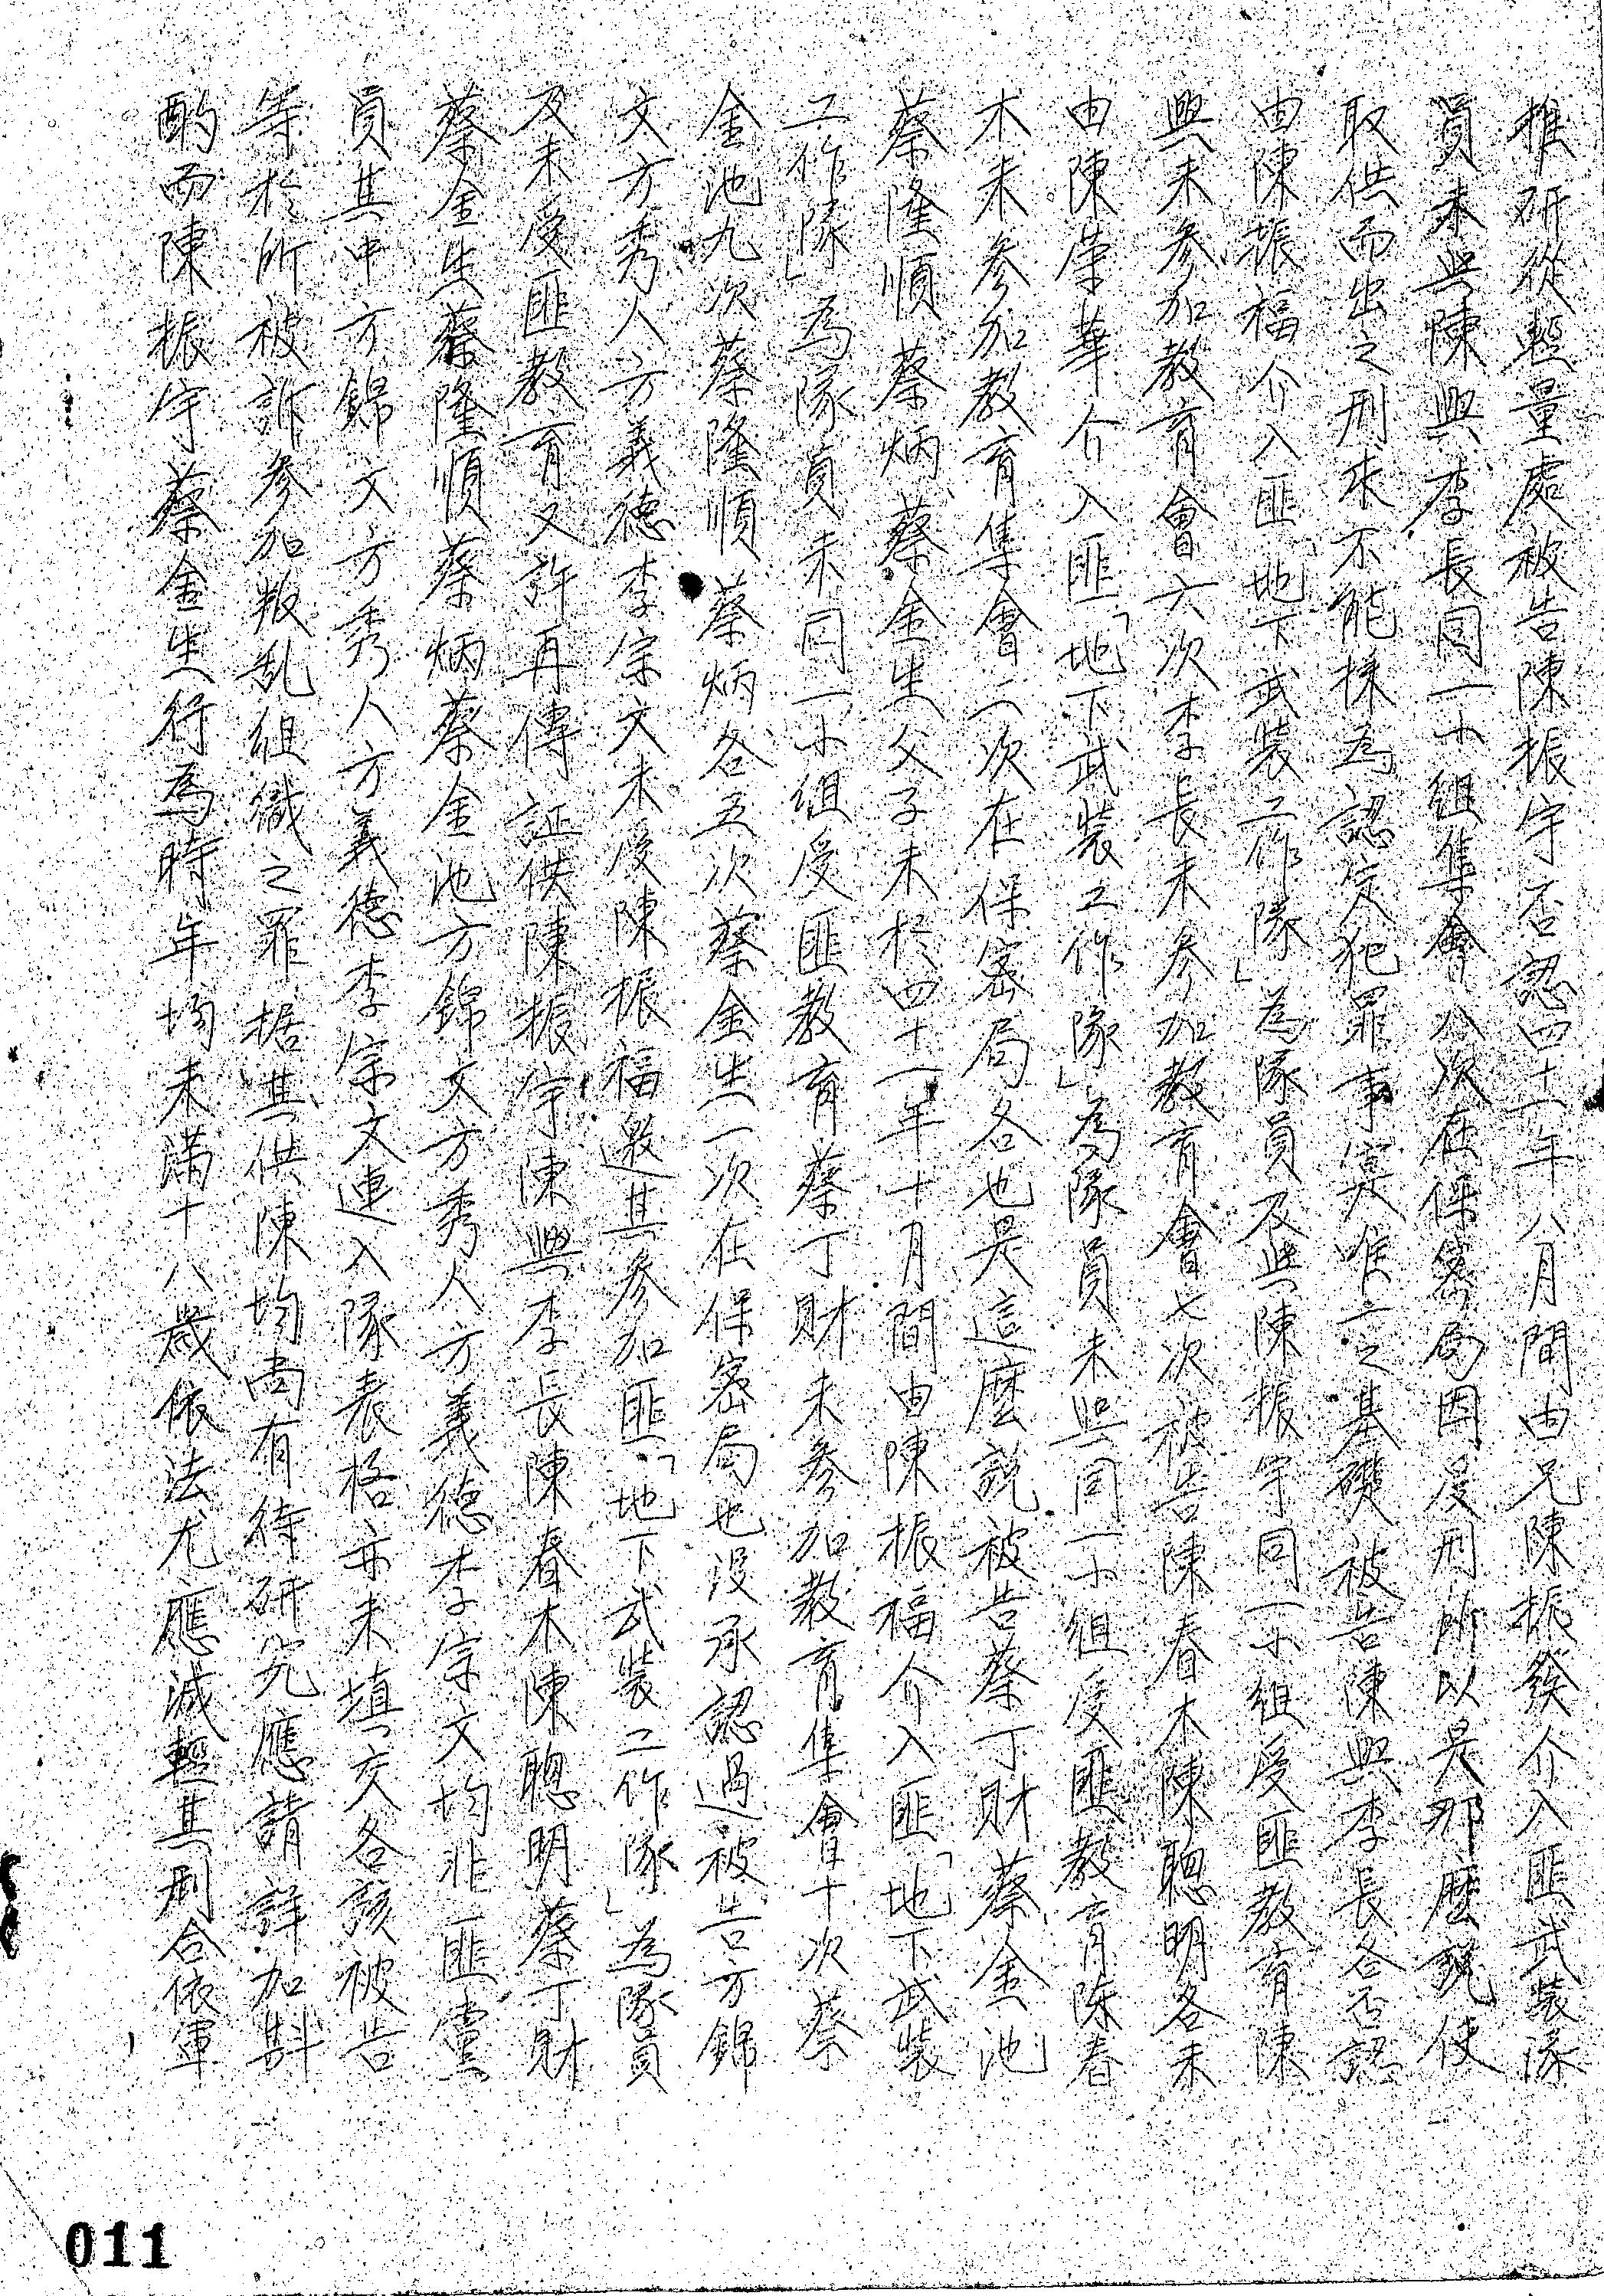 推研從輕量處被告陳振宇否認四十一年八月間由兄陳振發介入匪武裝隊
員未與陳與李長同一小組集會八次在保密局因受刑所以是那麼說使
取供而出之刑求不能採為認定犯罪事實唯一之基礎被告陳與李長各否認
由陳振福介入匪「地下武裝工作隊」為隊員及與陳振宇同一小組受匪教育陳
與未參加教育會六次李長未參加教育會七次被告陳春木陳聰明各未
由陳荣華介入匪「地下武裝工作隊」為隊員未與同一小組受匪教育陈春
木未參加教育集會二次在保密局各也是這麼說被告蔡丁財蔡金池
蔡隆順蔡炳蔡金生父子未於四十一年十月間由陳振福介入匪「地下武裝
工作隊」為隊員未同一小組受匪教育蔡丁財未參加教育集會十次蔡
金池九次蔡隆順蔡炳各五次蔡金生一次在保密局也沒承認過被告方錦
文方秀人方義德李宗文未受陳振福邀其參加匪「地下武裝工作隊」為隊員
及未受匪教育又許再傳証供陳振宇陳與李長陳春木陳聰明蔡丁財
蔡金生蔡隆順蔡炳蔡金池方錦文方秀人方義德李宗文均非匪黨
員其中方錦文方秀人方義德李宗文連入隊表格亦未填交各該被告
等於所被訴參加叛乱組織之罪据其供陳均尚有待研究應請詳加斟
酌而陳振宇蔡金生行為時年均未滿十八歲依法尤應減輕其刑合依軍
011